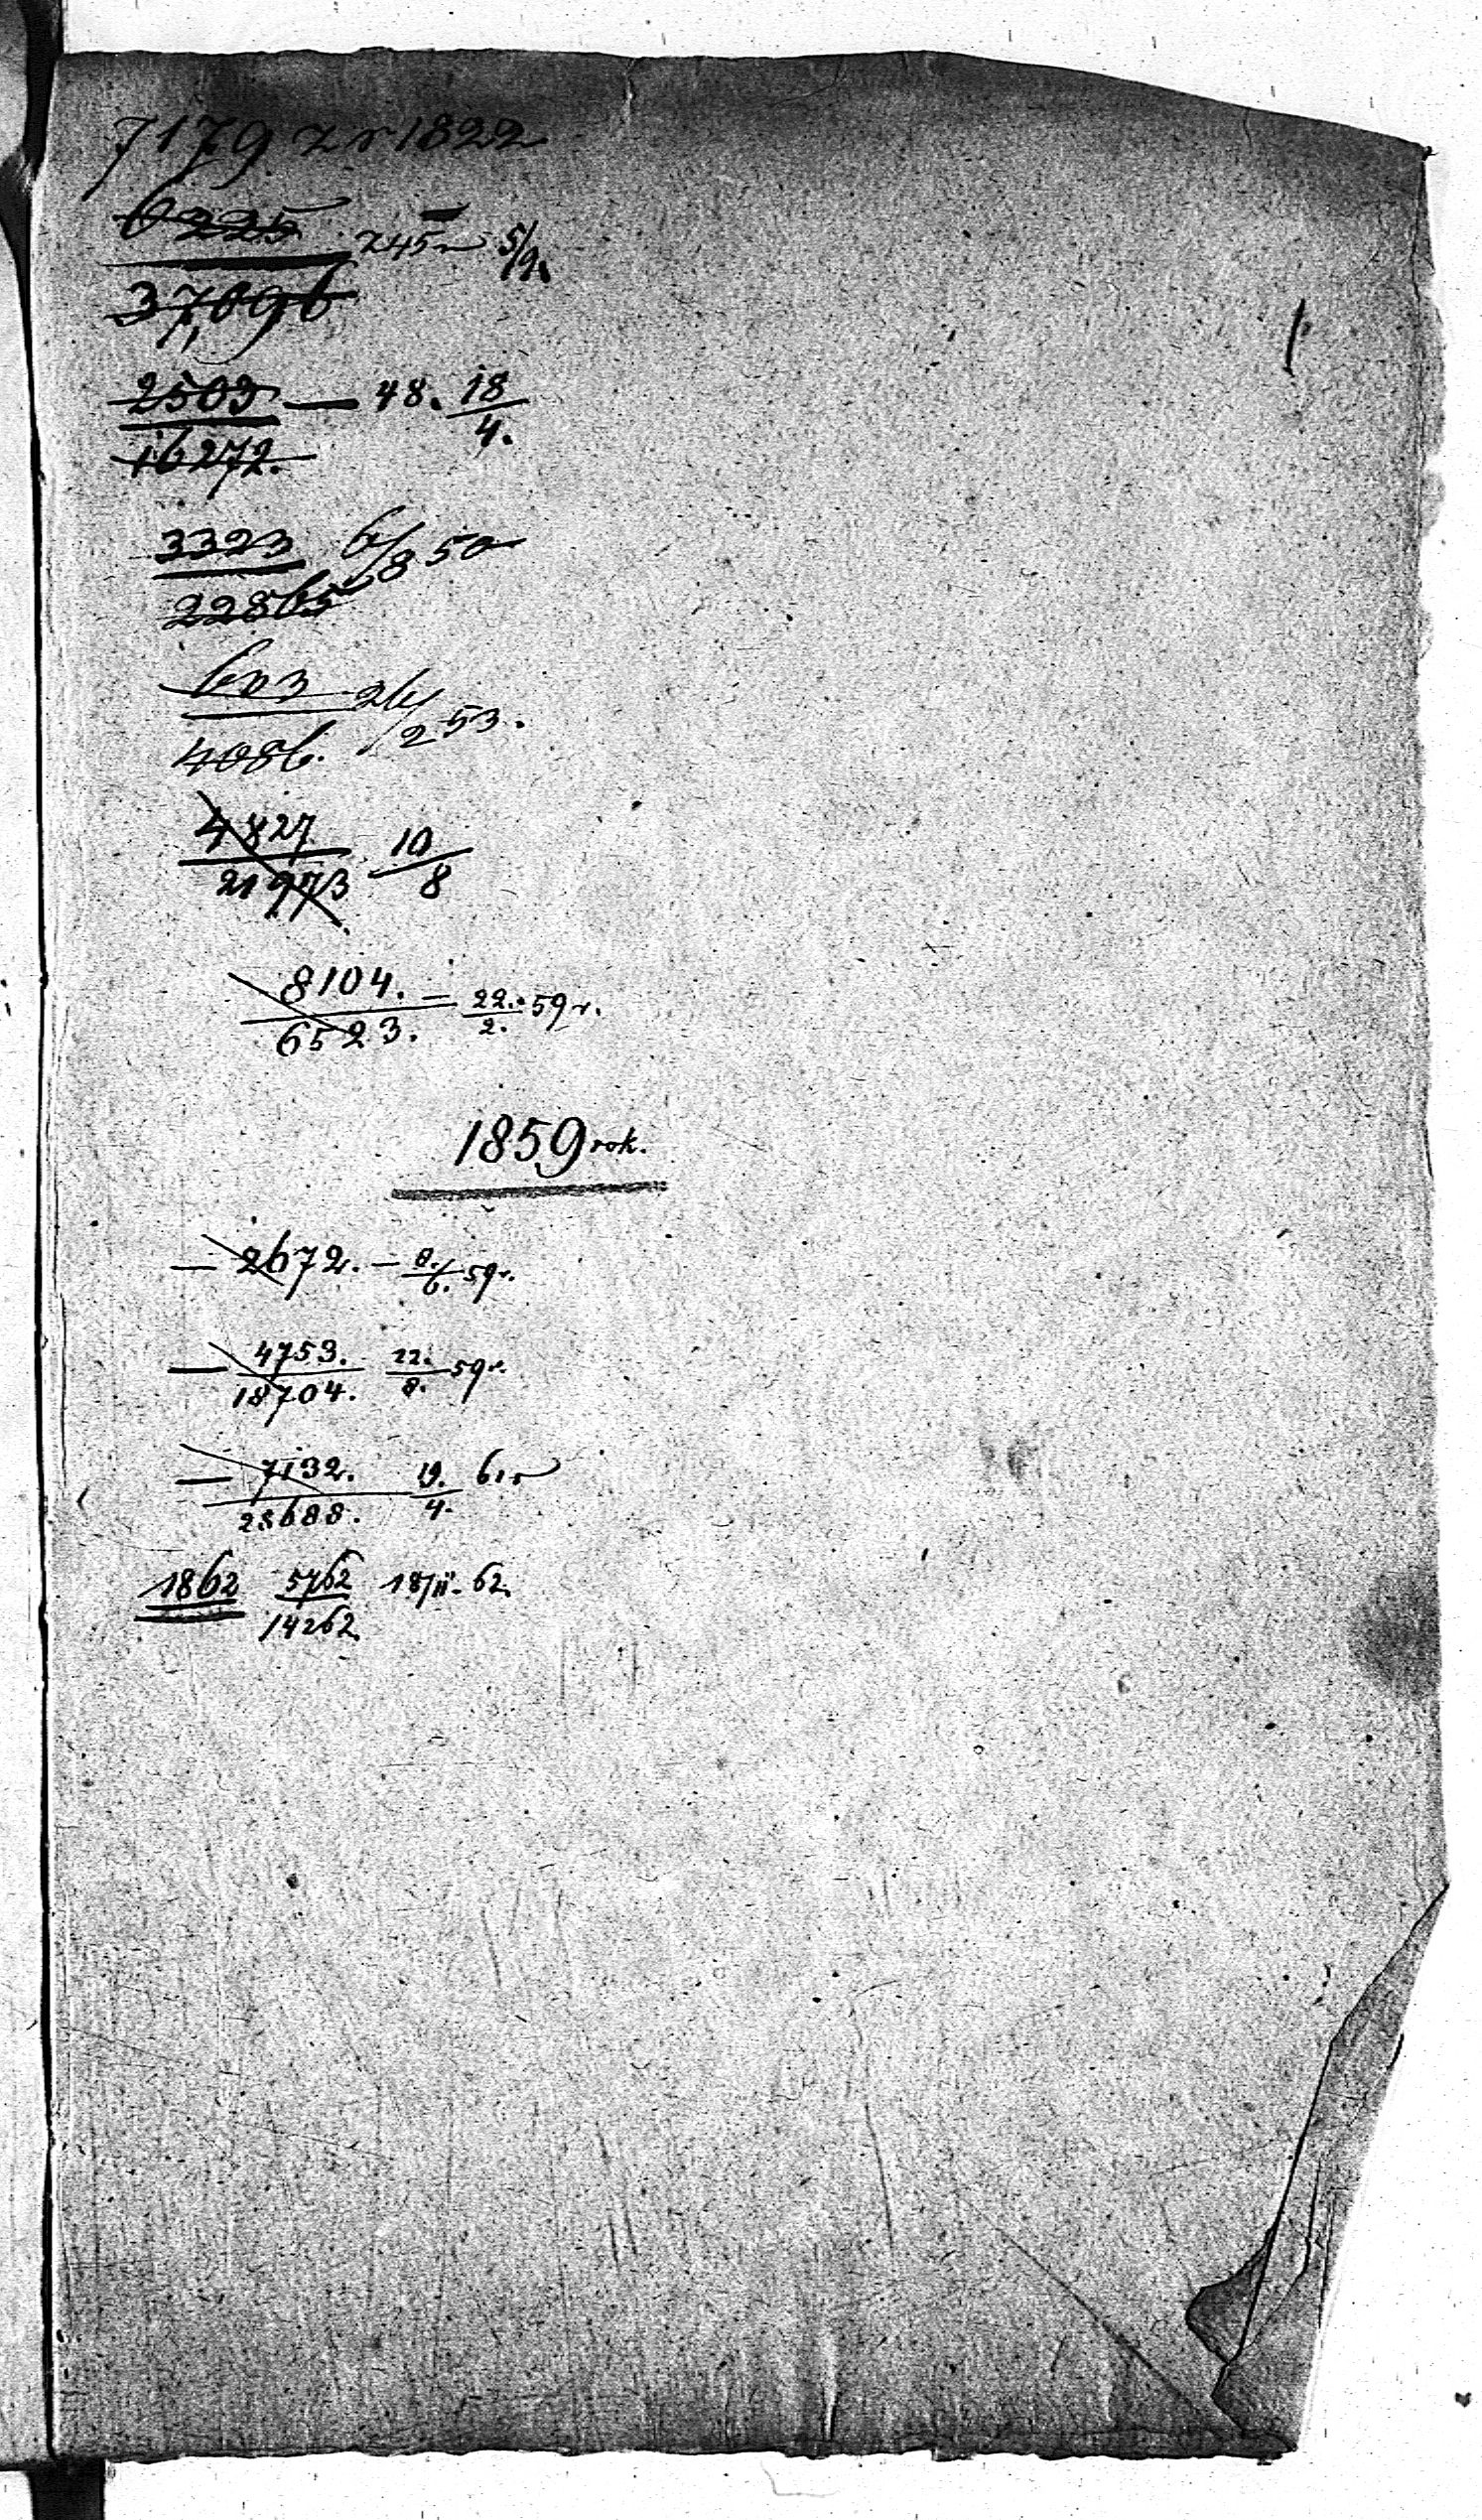 7179 z r 1822
6225 z 45 r 5/9
37,096
2503 — 48. 18/4.
16272.
3323 6/8 50
22865
603 26/2 53.
4086.
4827 10/8
21973
8104. — 22./2. 59 r.
6523.
1859 rok.
— 2672. — 8./6. 59 r.
— 4753. 22./8. 59 r.
18704.
— 7132. 19./4. 61 r
28688.
1862 5762 18/II. 62
14262